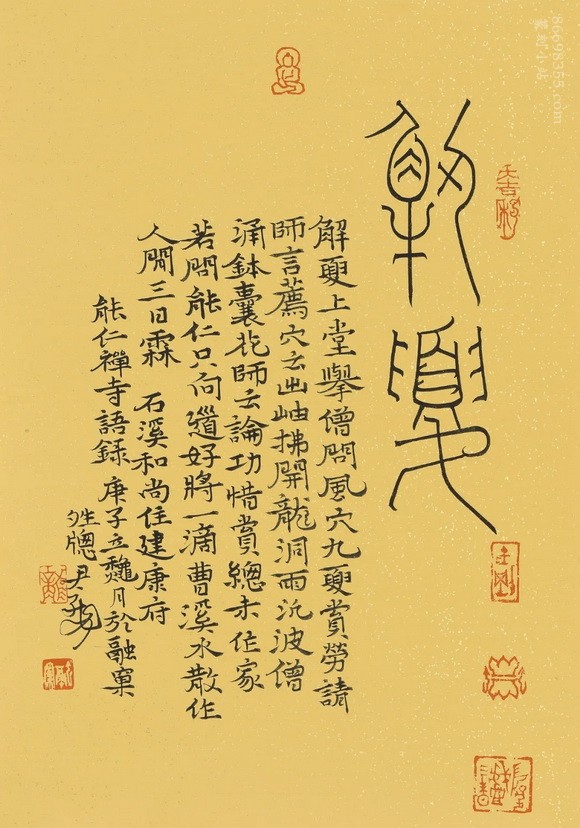 解夏
解夏上堂舉僧問風穴九夏賞勞請
師言薦穴云出岫拂開龍洞雨汎波僧
涌鉢囊花師云論功惜賞總未作家
若問能仁只向道好將一滴曹溪水散作
人間三日霖 石溪和尚住建康府
能仁禪寺語錄 庚子立秋月於融菓
牲牕尹
86698355.com
篆刻小站